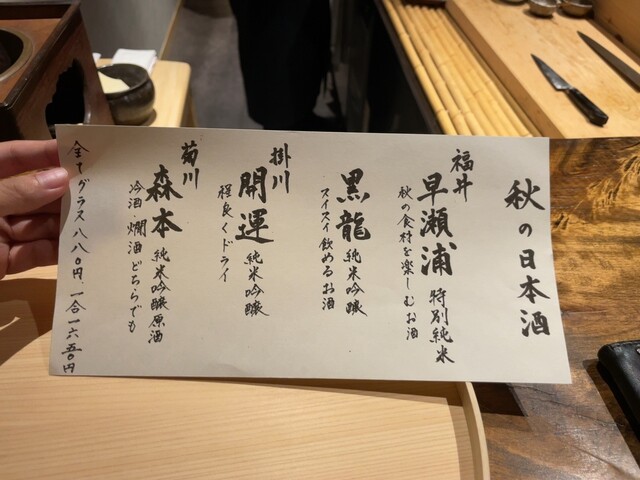 秋の日本酒
福井
早瀬浦 特別純米
秋の食材を楽しむお酒
黒龍 純米吟醸
スイスイ飲めるお酒
掛川
開運 純米吟醸
程良くドライ
菊川
森本 純米吟醸原酒
冷酒・燗酒どちらでも
全てグラス八八〇円、一合一六五〇円